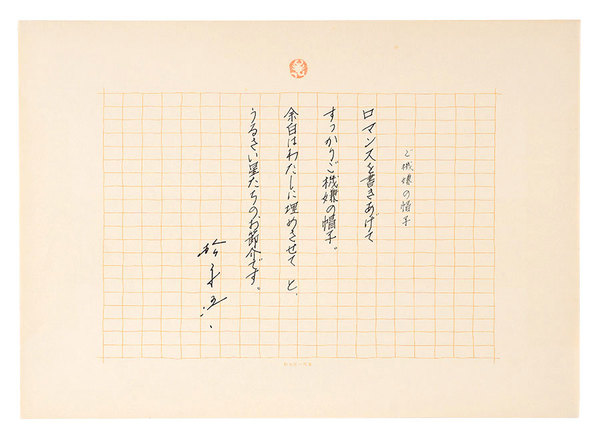 ご機嫌の帽子
ロマンスを書きあげて
すっかりご機嫌の帽子。
余白はわたしに埋めさせて と、
うるさい星たちのお節介です。